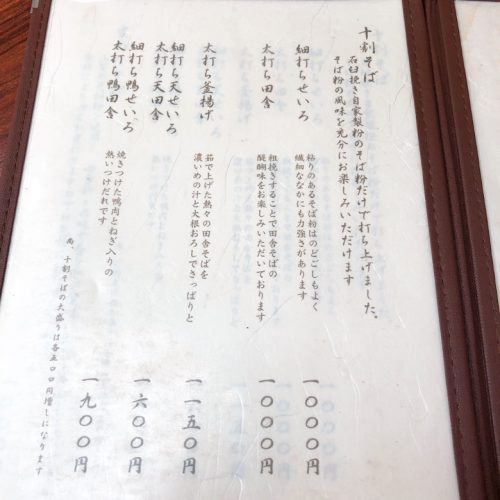 十割そば
石臼挽き自家製粉のそば粉だけで打ち上げました。
そば粉の風味を充分にお楽しみいただけます
細打ちせいろ
粘りのあるそば粉はのどごしもよく
繊細ななかにも力強さがあります
一〇〇〇円
太打ち田舎
粗挽きすることで田舎そばの
醍醐味をお楽しみいただいております
一〇〇〇円
太打ち釜揚げ
茹で上げた熱々の田舎そばを
濃いめの汁と大根おろしでさっぱりと
一一五〇円
細打ち天せいろ
太打ち天田舎
一六〇〇円
細打ち鴨せいろ
太打ち鴨田舎
焼きつけた鴨肉とねぎ入りの
熱いつけだれです
一九〇〇円
尚、十割そばの大盛りは各五〇〇円増しになります